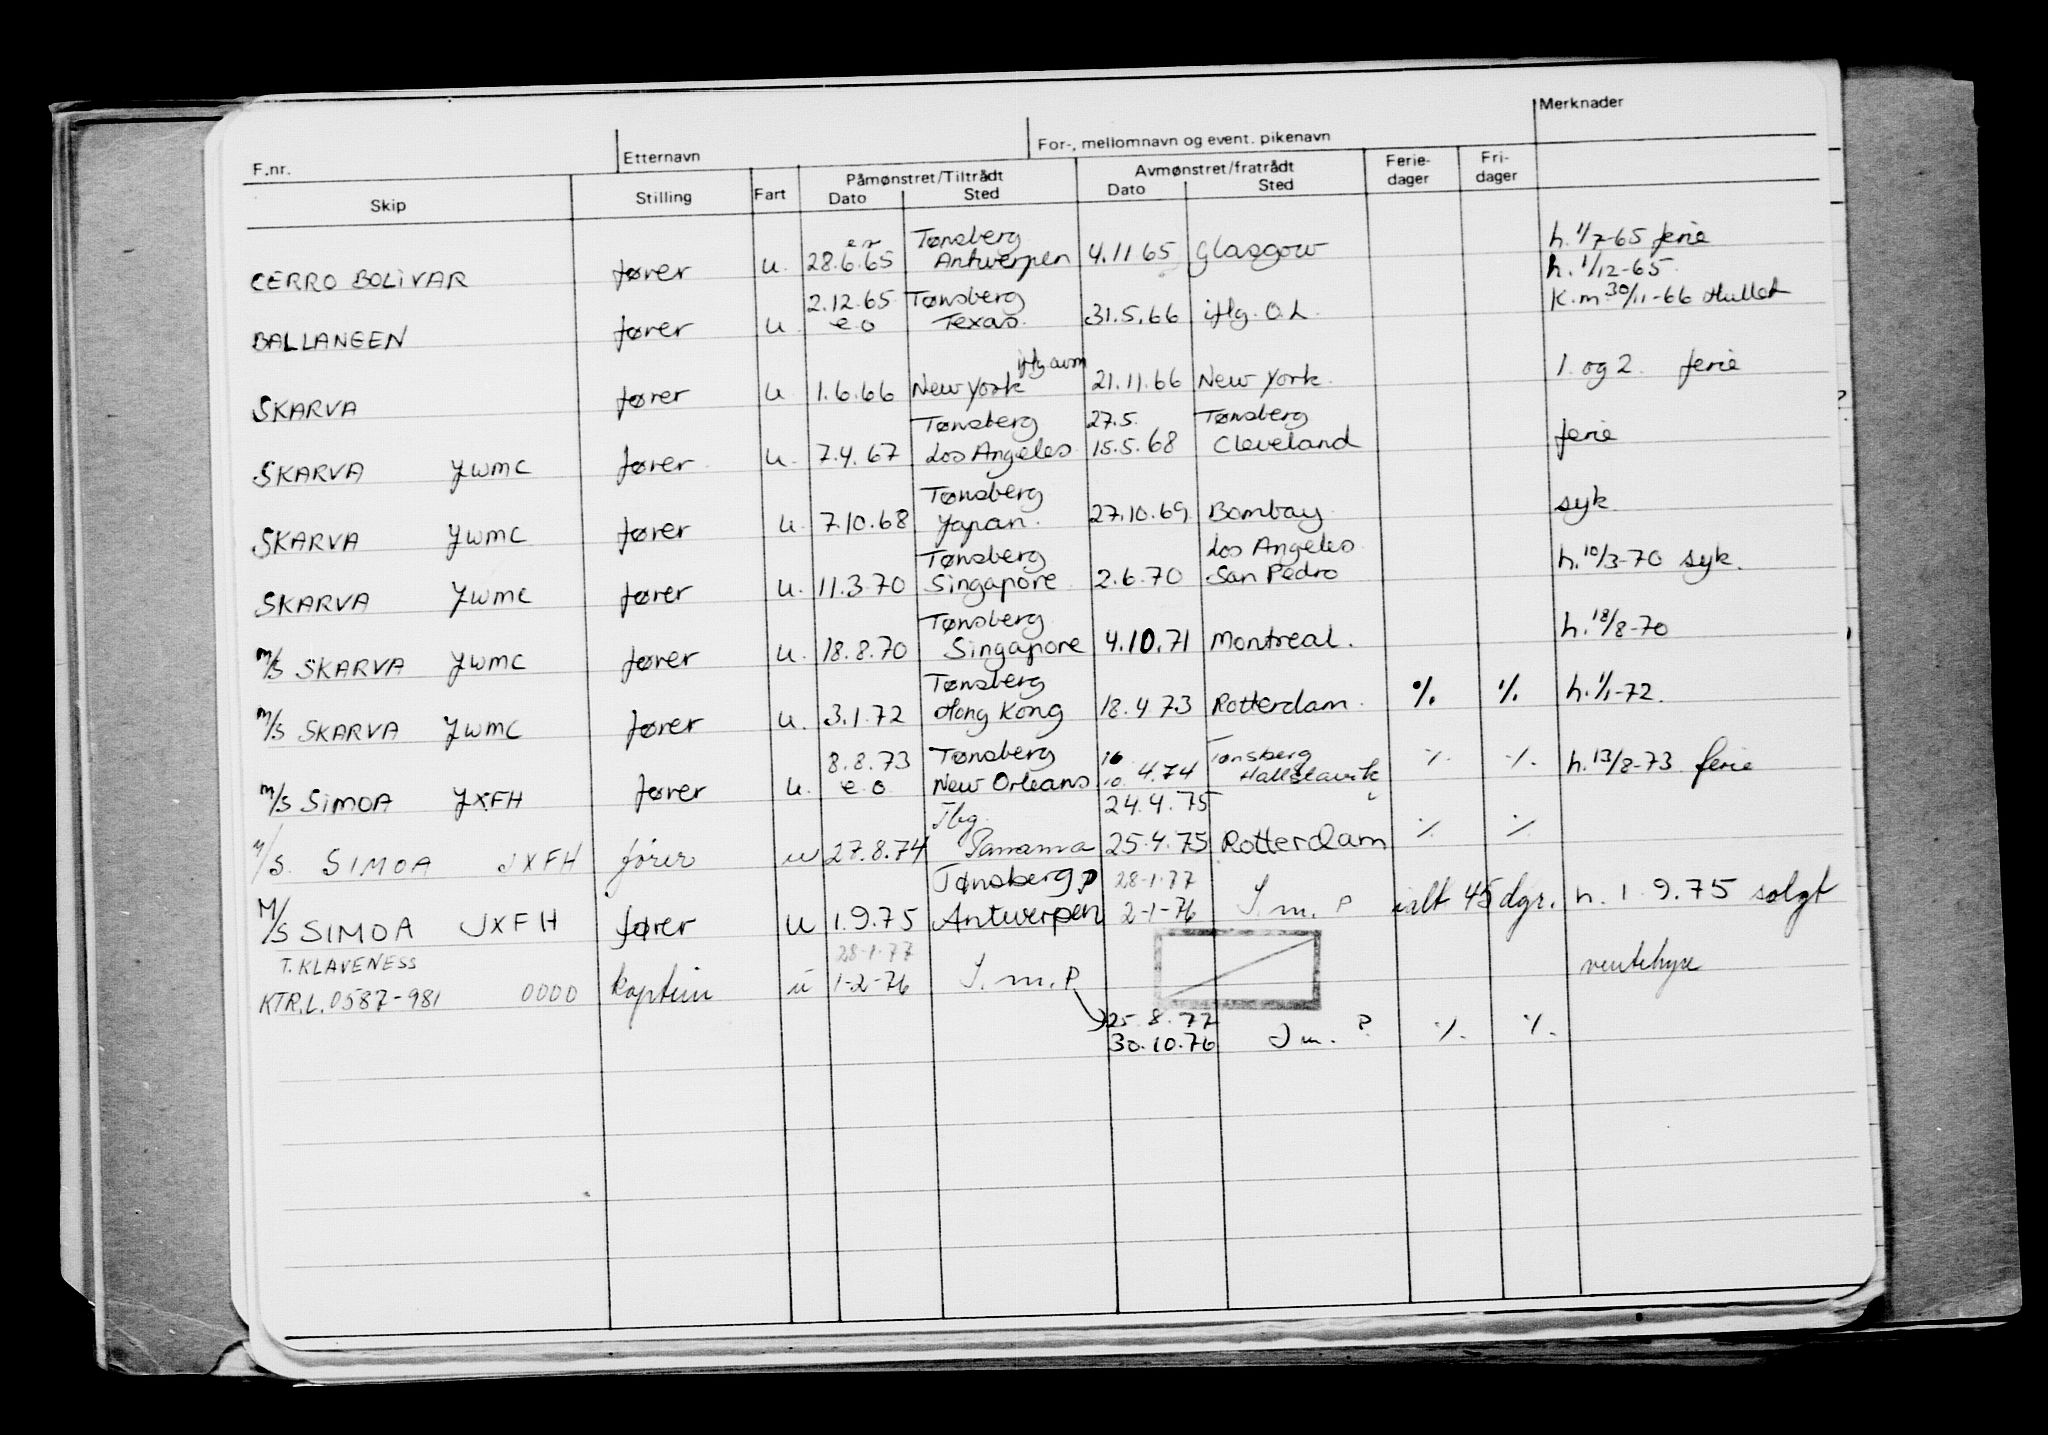 F.nr. Etternavn For-, mellomnavn og event. pikenavn Merknader
Skip Stilling Fart Påmønstret/Tiltrådt Dato Sted Avmønstret/fratrådt Dato Sted Ferie-dager Fri-dager
Tønsberg h. 1/7-65 ferie
CERRO BOLIVAR fører u. 28.6.65 Antwerpen 4.11 65 Glasgow h. 1/12-65.
2.12.65 Tønsberg K.m 30/11-66
BALLANGEN fører u e.o Texas. 31.5.66 iflg. O.L.
iflg avm
SKARVA fører u 1.6.66 New York 21.11.66 New York. 1. og 2. ferie
Tønsberg 27.5. Tønsberg
SKARVA JWMC fører u. 7.4.67 Los Angeles 15.5.68 Cleveland ferie
Tønsberg
SKARVA JWMC fører u. 7.10.68 Japan. 27.10.69 Bombay syk
Tønsberg Los Angeles
SKARVA JWMC fører u. 11.3.70 Singapore 2.6.70 San Pedro h. 10/3-70 syk.
Tønsberg
M/S SKARVA JWMC fører u. 18.8.70 Singapore 4.10.71 Montreal. h. 18/8-70
Tønsberg
M/S SKARVA JWMC fører u. 3.1.72 Hong Kong 18.4 73 Rotterdam. % % h. 1/1-72.
8.8.73 Tønsberg 16 Tønsberg
M/S SIMOA JXFH fører u. e.o New Orleans 10. 4.74 Hallstavik % % h. 13/8-73 ferie
Tbg. 24.4.75
M/S. SIMOA JXFH fører u 27.8.74 Panama 25.4.75 Rotterdam % %
Tønsberg 28-1-77
M/S SIMOA JXFH fører u 1.9.75 Antwerpen 2-1-76 I.m.P 45 dgr. h. 1.9.75 solgt
T. KLAVENESS 28-1-77
KTR.L. 0587-981 0000 kaptein u 1-2-76 I.m.P ventehyre
25.8.77
30.10.76 I m. P % %